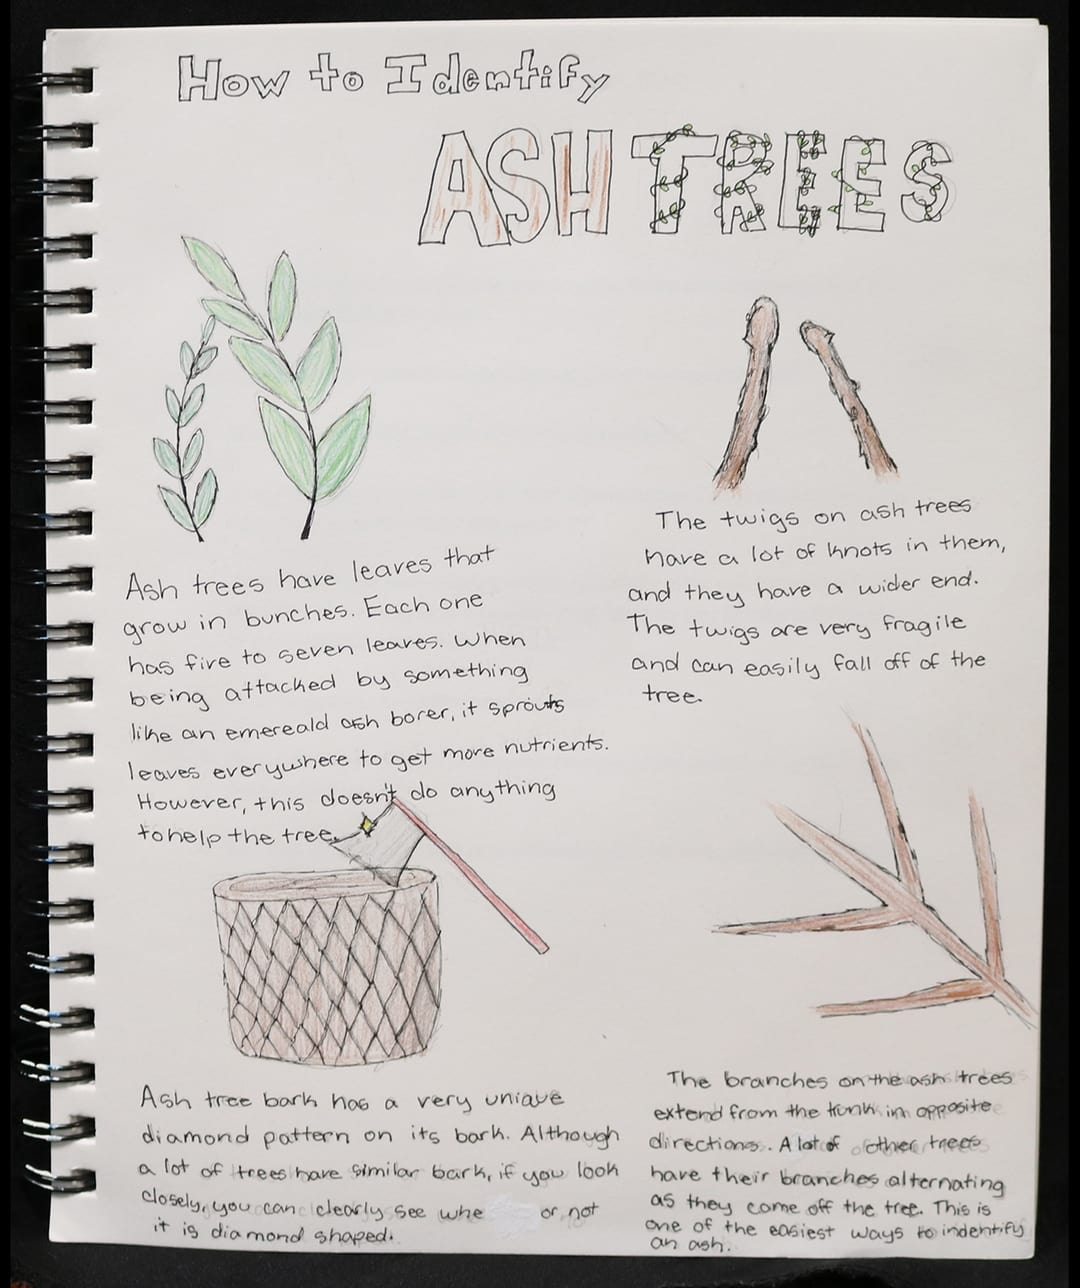 How to Identify
ASH TREES
Ash trees have leaves that
grow in bunches. Each one
has five to seven leaves. When
being attacked by something
like an emereald ash borer, it sprouts
leaves everywhere to get more nutrients.
However, this doesn't do anything
to help the tree.
The twigs on ash trees
have a lot of knots in them,
and they have a wider end.
The twigs are very fragile
and can easily fall off of the
tree.
Ash tree bark has a very uniave
diamond pattern on its bark. Although
a lot of trees have similar bark, if you look
closely, you can clearly see whe or not
it is diamond shaped.
The branches on the ash trees
extend from the trunk in opposite
directions. A lot of other trees
have their branches alternating
as they come off the tree. This is
one of the easiest ways to indentify
an ash.